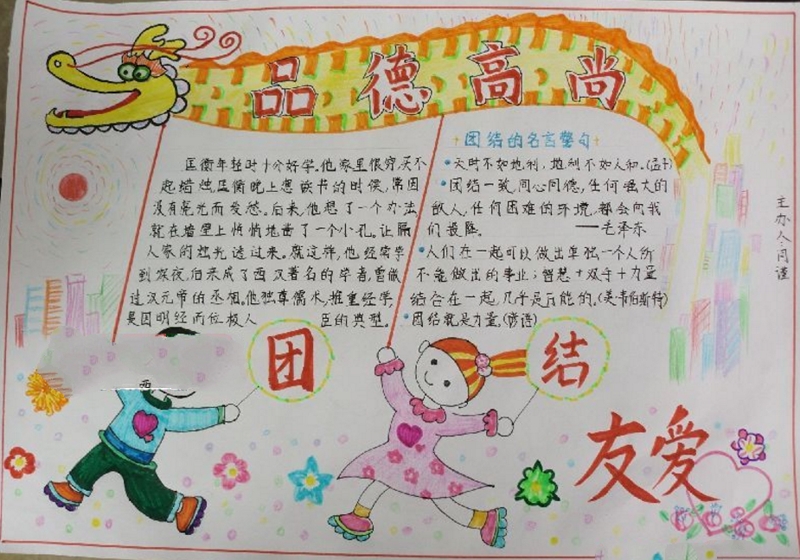 品德高尚
匡衡年轻时十分好学。他家里很穷买不
起蜡烛匡衡晚上想读书的时候,常因
没有亮光而发愁。后来,他想了一个办法
就在墙壁上悄悄地凿了一个小孔。让隔
人家的烛光透过来。就这样,他经常学
到深夜,后来成了西汉著名的学者,曾做
过汉元帝的丞相,他独尊儒术,推重经学,
是因明经而位极人 臣的典型。
西
团结的名言警句
天时不如地利,地利不如人和。(孟子)
团结一致,同心同德,任何强大的
敌人,任何困难的环境,都会向我
们投降。——毛泽东
人们在一起可以做出单独一个人所
不能做出的事业;智慧+双手+力量
结合在一起,几乎是万能的。(美·韦伯斯特)
团结就是力量。(谚语)
主办人:闫谨
团
结
友爱